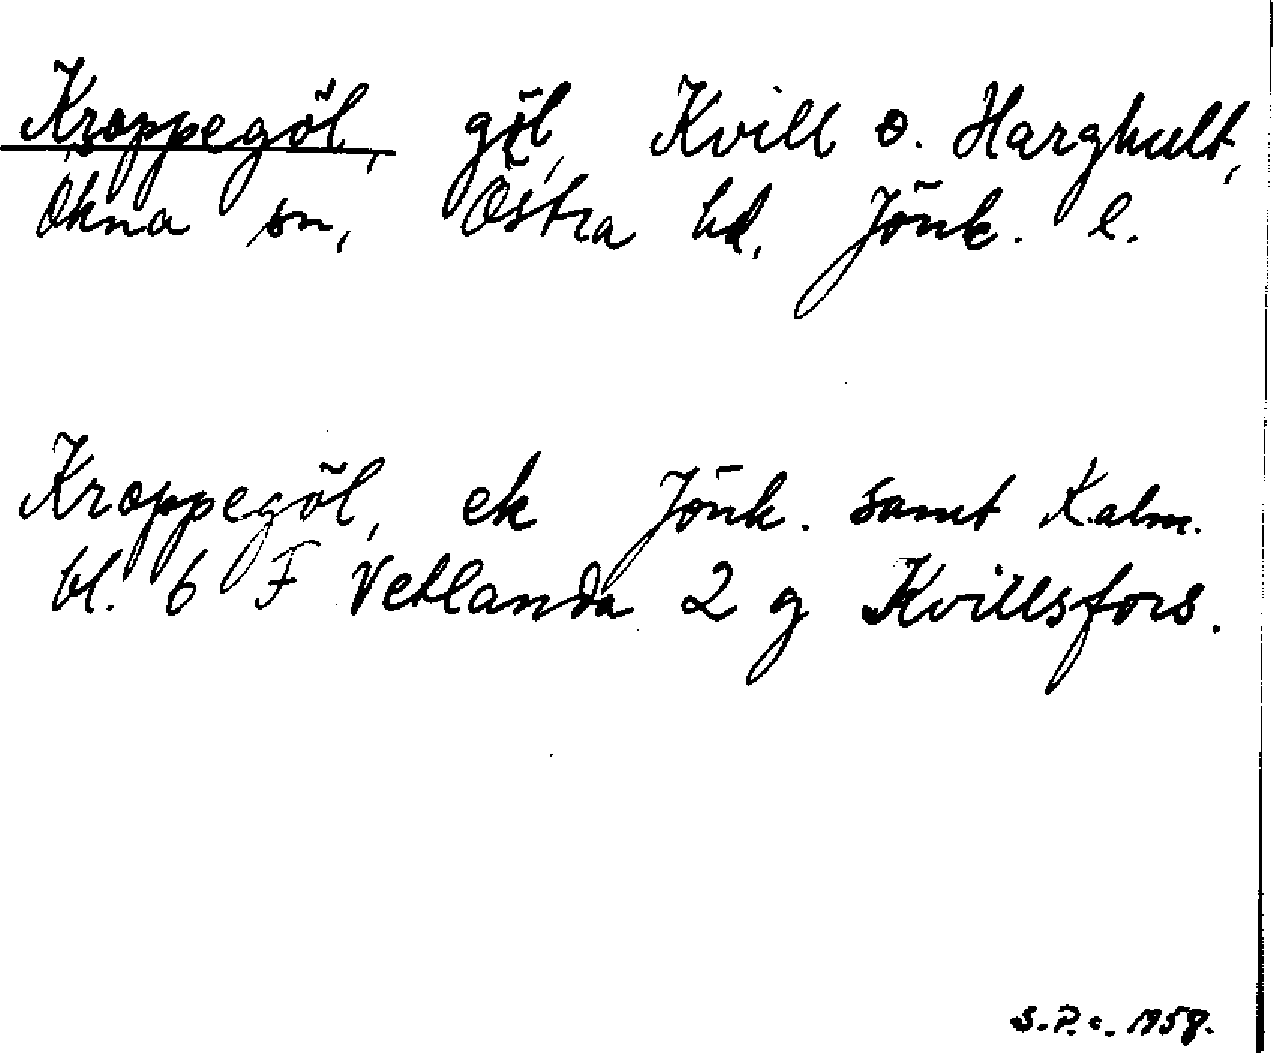 Kroppegöl, göl, Kvill o. Harghult,
Ökna sn, Östra hd, Jönk. l.
Kroppegöl, ek Jönk. samt Kalm.
bl. 6 F Vetlanda 2 g Kvillsfors.
S.P.c. 1958.